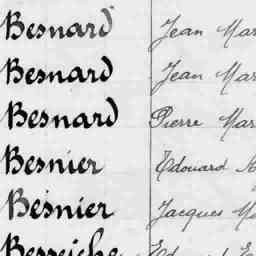 Besnard Jean Mar
Besnard Jean Mar
Besnard Pierre Mar
Besnier Edouard
Besnier Jacques Ma